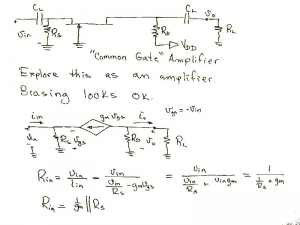 C_L C_L v_o
v_in R_S R_D R_L
V_DD
"Common Gate" Amplifier
Explore this as an amplifier.
Biasing looks OK.
i_in g_m v_gs i_o v_gs = -v_in
v_in R_S v_gs R_D v_o R_L
R_in = v_in / i_in = v_in / (v_in / R_S - g_m v_gs) = v_in / (v_in / R_S + v_in g_m) = 1 / (1 / R_S + g_m)
R_in = 1 / g_m || R_S